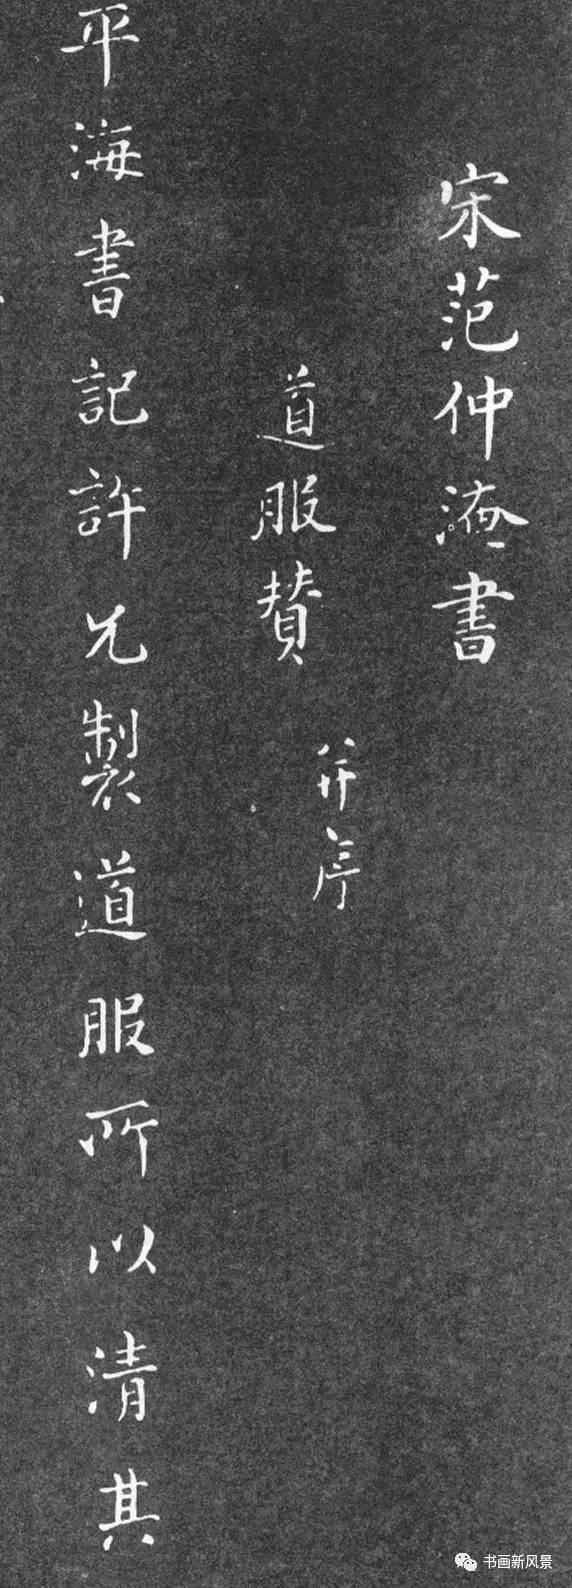 宋范仲淹書
道服赞
并序
平海書記許兄製道服所以清其
书画新风景